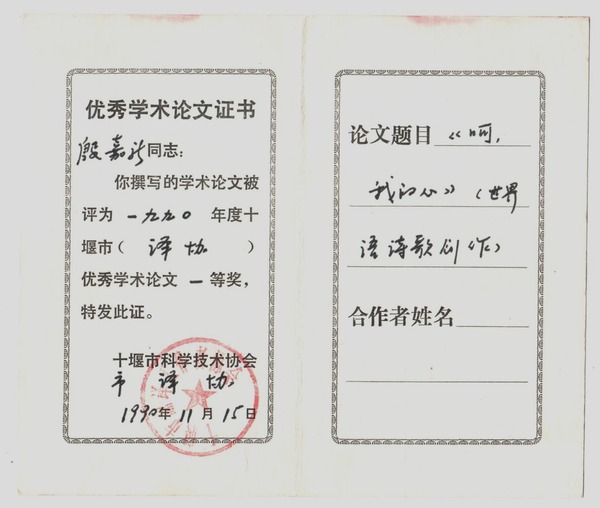 优秀学术论文证书
殷嘉新同志:
你撰写的学术论文被
评为一九九〇年度十
堰市(译协)
优秀学术论文一等奖,
特发此证。
十堰市科学技术协会
市译协
1990年11月15日
论文题目《啊,
我的心》(世界
语诗歌创作)
合作者姓名